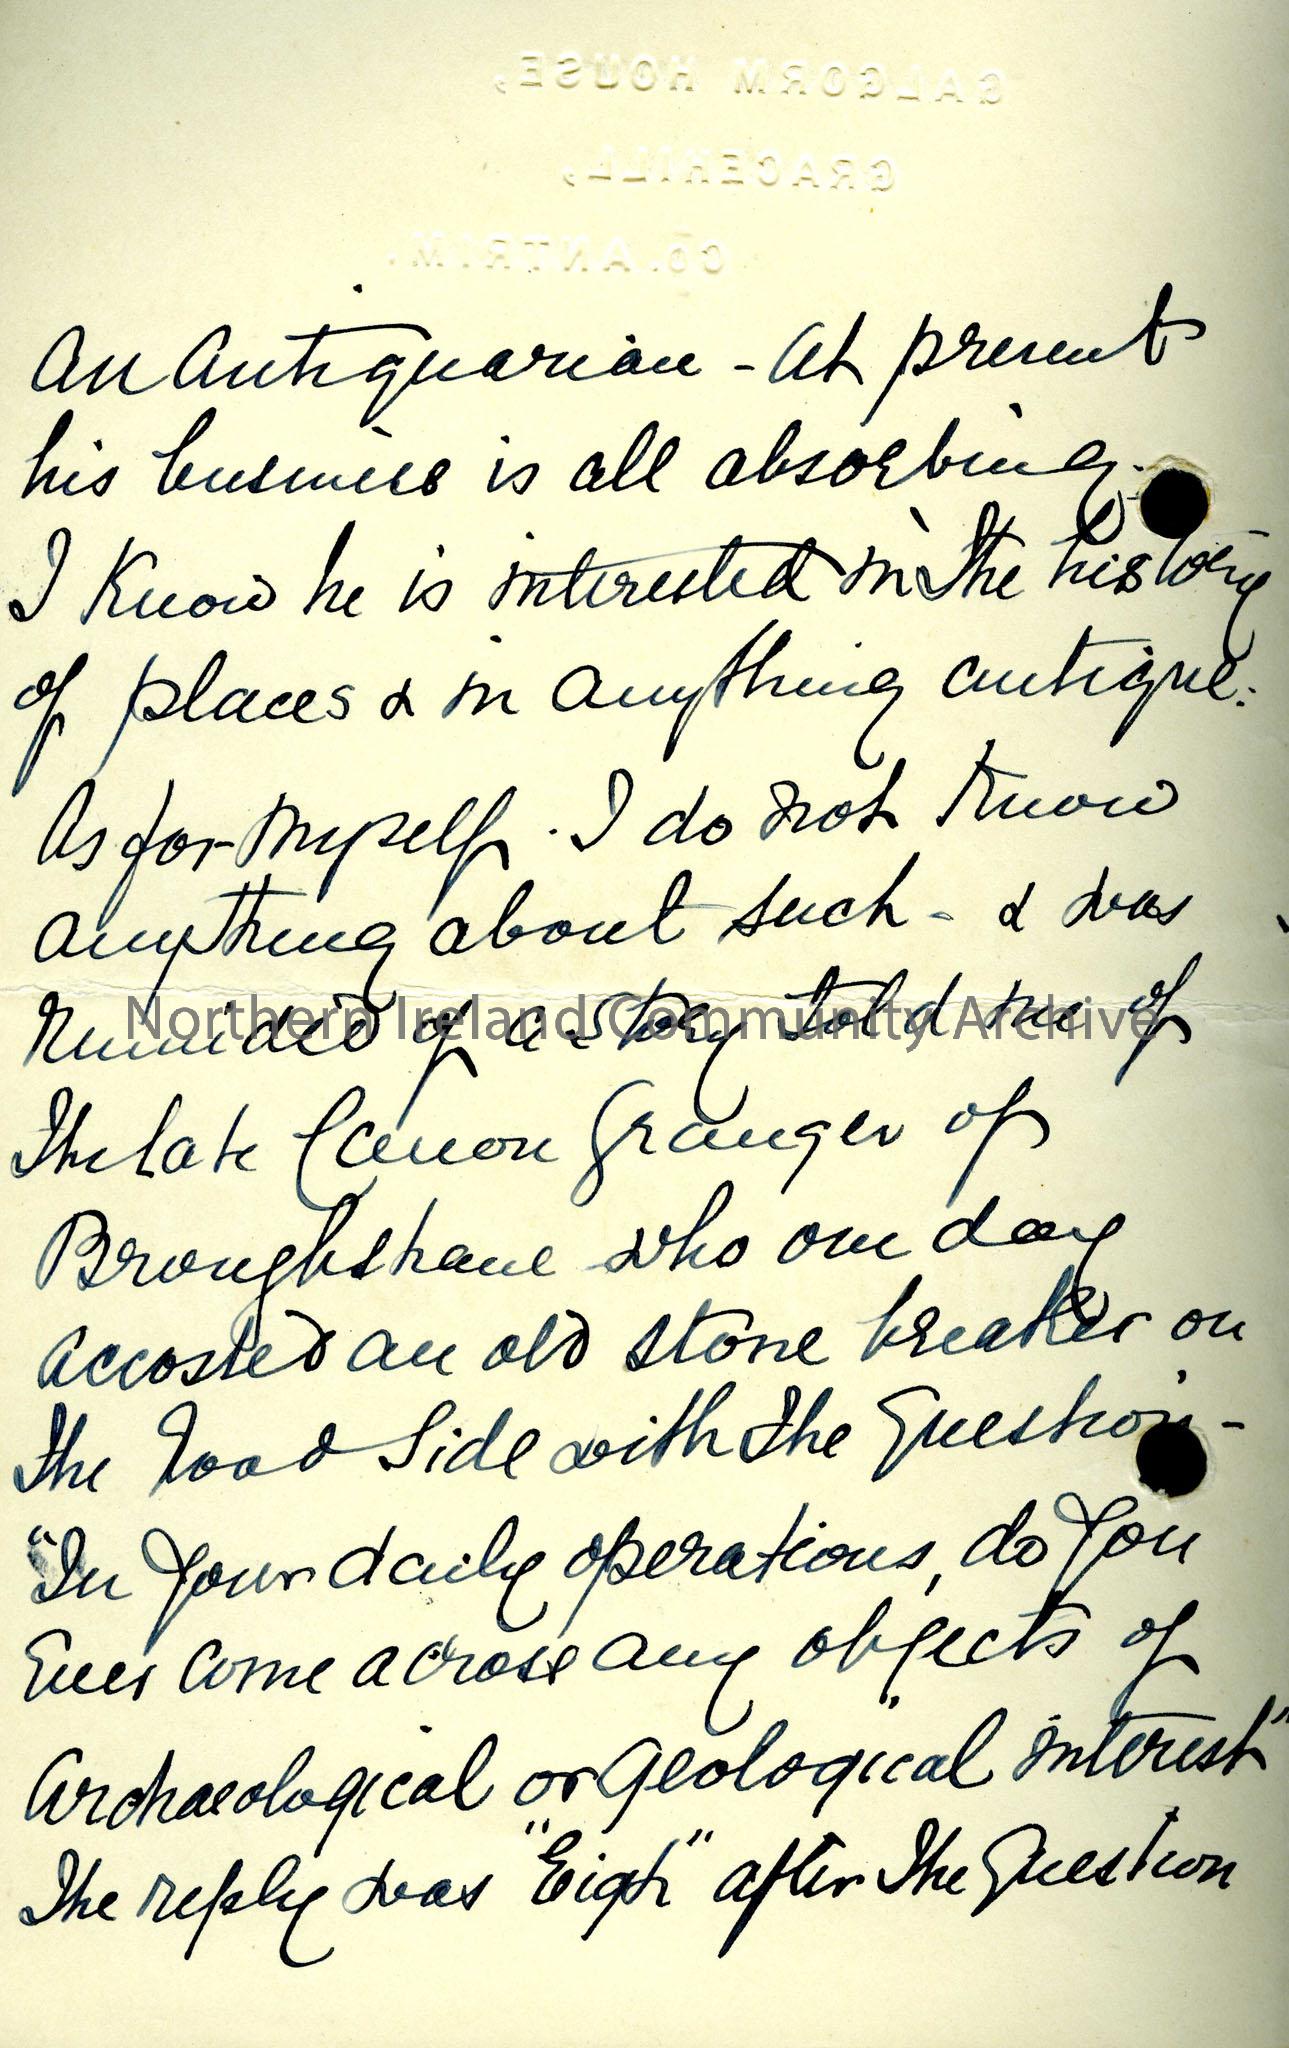 GALGORM HOUSE,
GRACEHILL,
CO. ANTRIM.
An Antiquarian - At present
his business is all absorbing.
I know he is interested in the history
of places & in anything antique.
As for myself. I do not know
anything about such - & was
reminded of a story told me of
The late Canon Grainger of
Broughshane who one day
accosted an old stone breaker on
the road side with the Question -
"In your daily operations, do you
Ever come across any objects of
Archaeological or Geological interest"
The reply was "Eigh" after the Question
Northern Ireland Community Archive